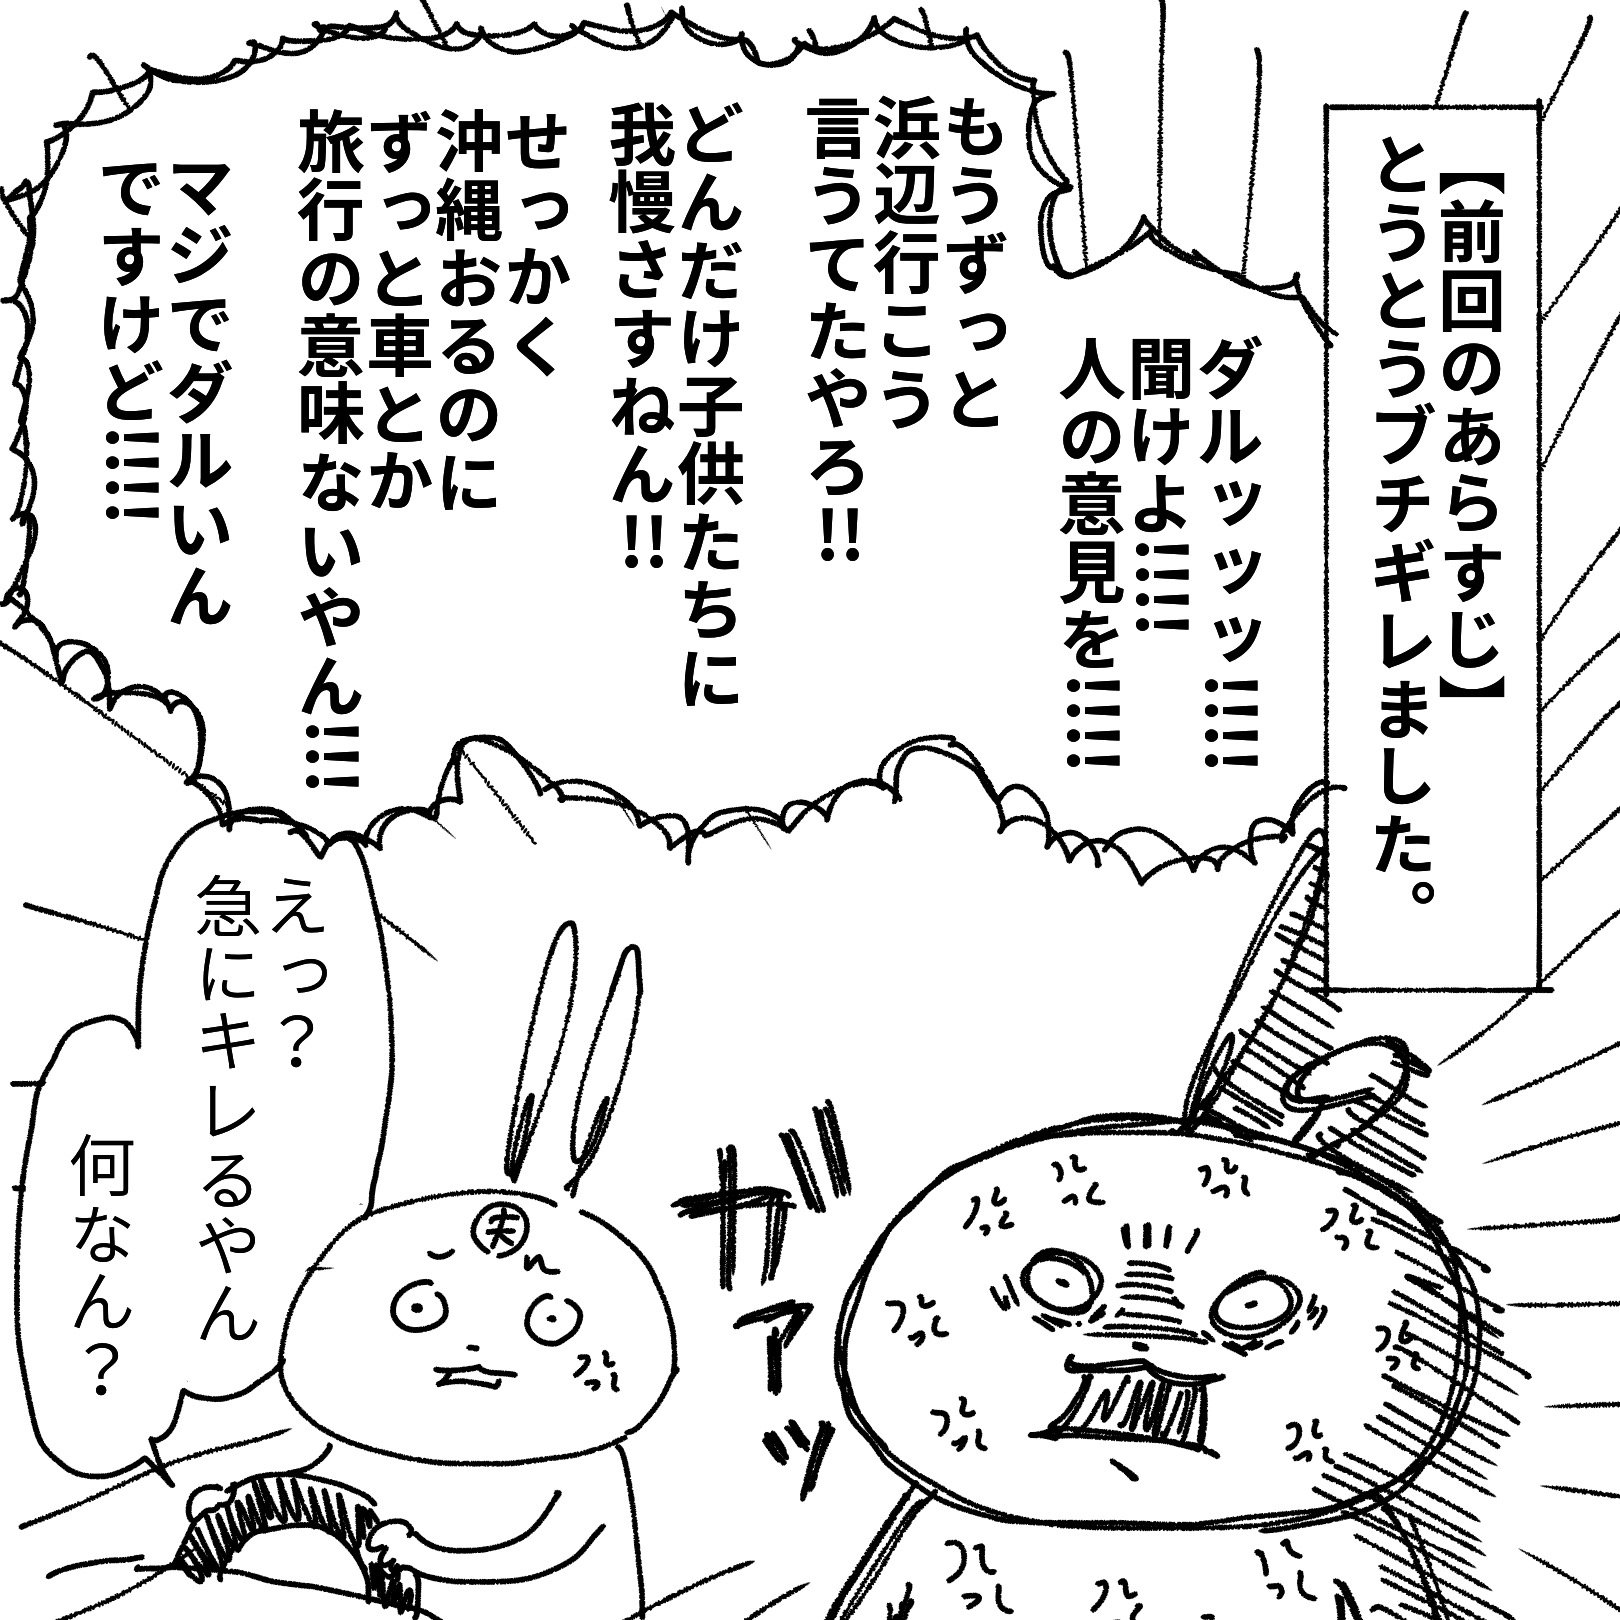 【前回のあらすじ】
とうとうブチギレました。
ダルッッッ!!!!
聞けよ!!!!
人の意見を!!!!
もうずっと
浜辺行こう
言うてたやろ!!
どんだけ子供たちに
我慢さすねん!!
せっかく
沖縄おるのに
ずっと車とか
旅行の意味ないやん!!!
マジでダルいん
ですけど!!!!
ガァッ
えっ？
急にキレるやん
何なん？
夫